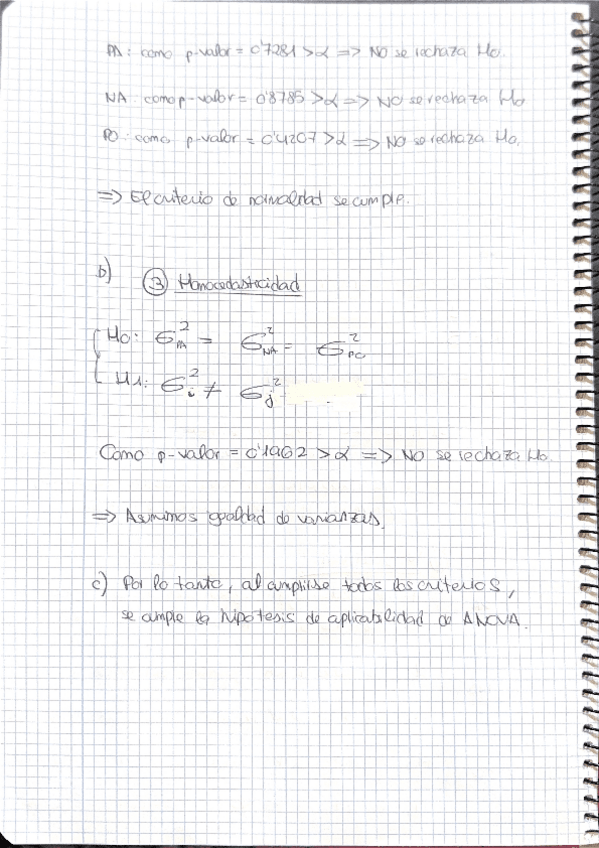 PA: como p-valor = 0'7281 > α => NO se rechaza Ho.
NA: como p-valor = 0'8785 > α => NO se rechaza Ho
PO: como p-valor = 0'4207 > α => NO se rechaza Ho.
=> El criterio de normalidad se cumple.
b) ③ Homocedasticidad
Ho: σ²PA = σ²NA = σ²PO
H1: σi² ≠ σj²
Como p-valor = 0'1962 > α => NO se rechaza Ho.
=> Asumimos igualdad de varianzas.
c) Por lo tanto, al cumplirse todos los criterios,
se cumple la hipótesis de aplicabilidad de ANOVA.